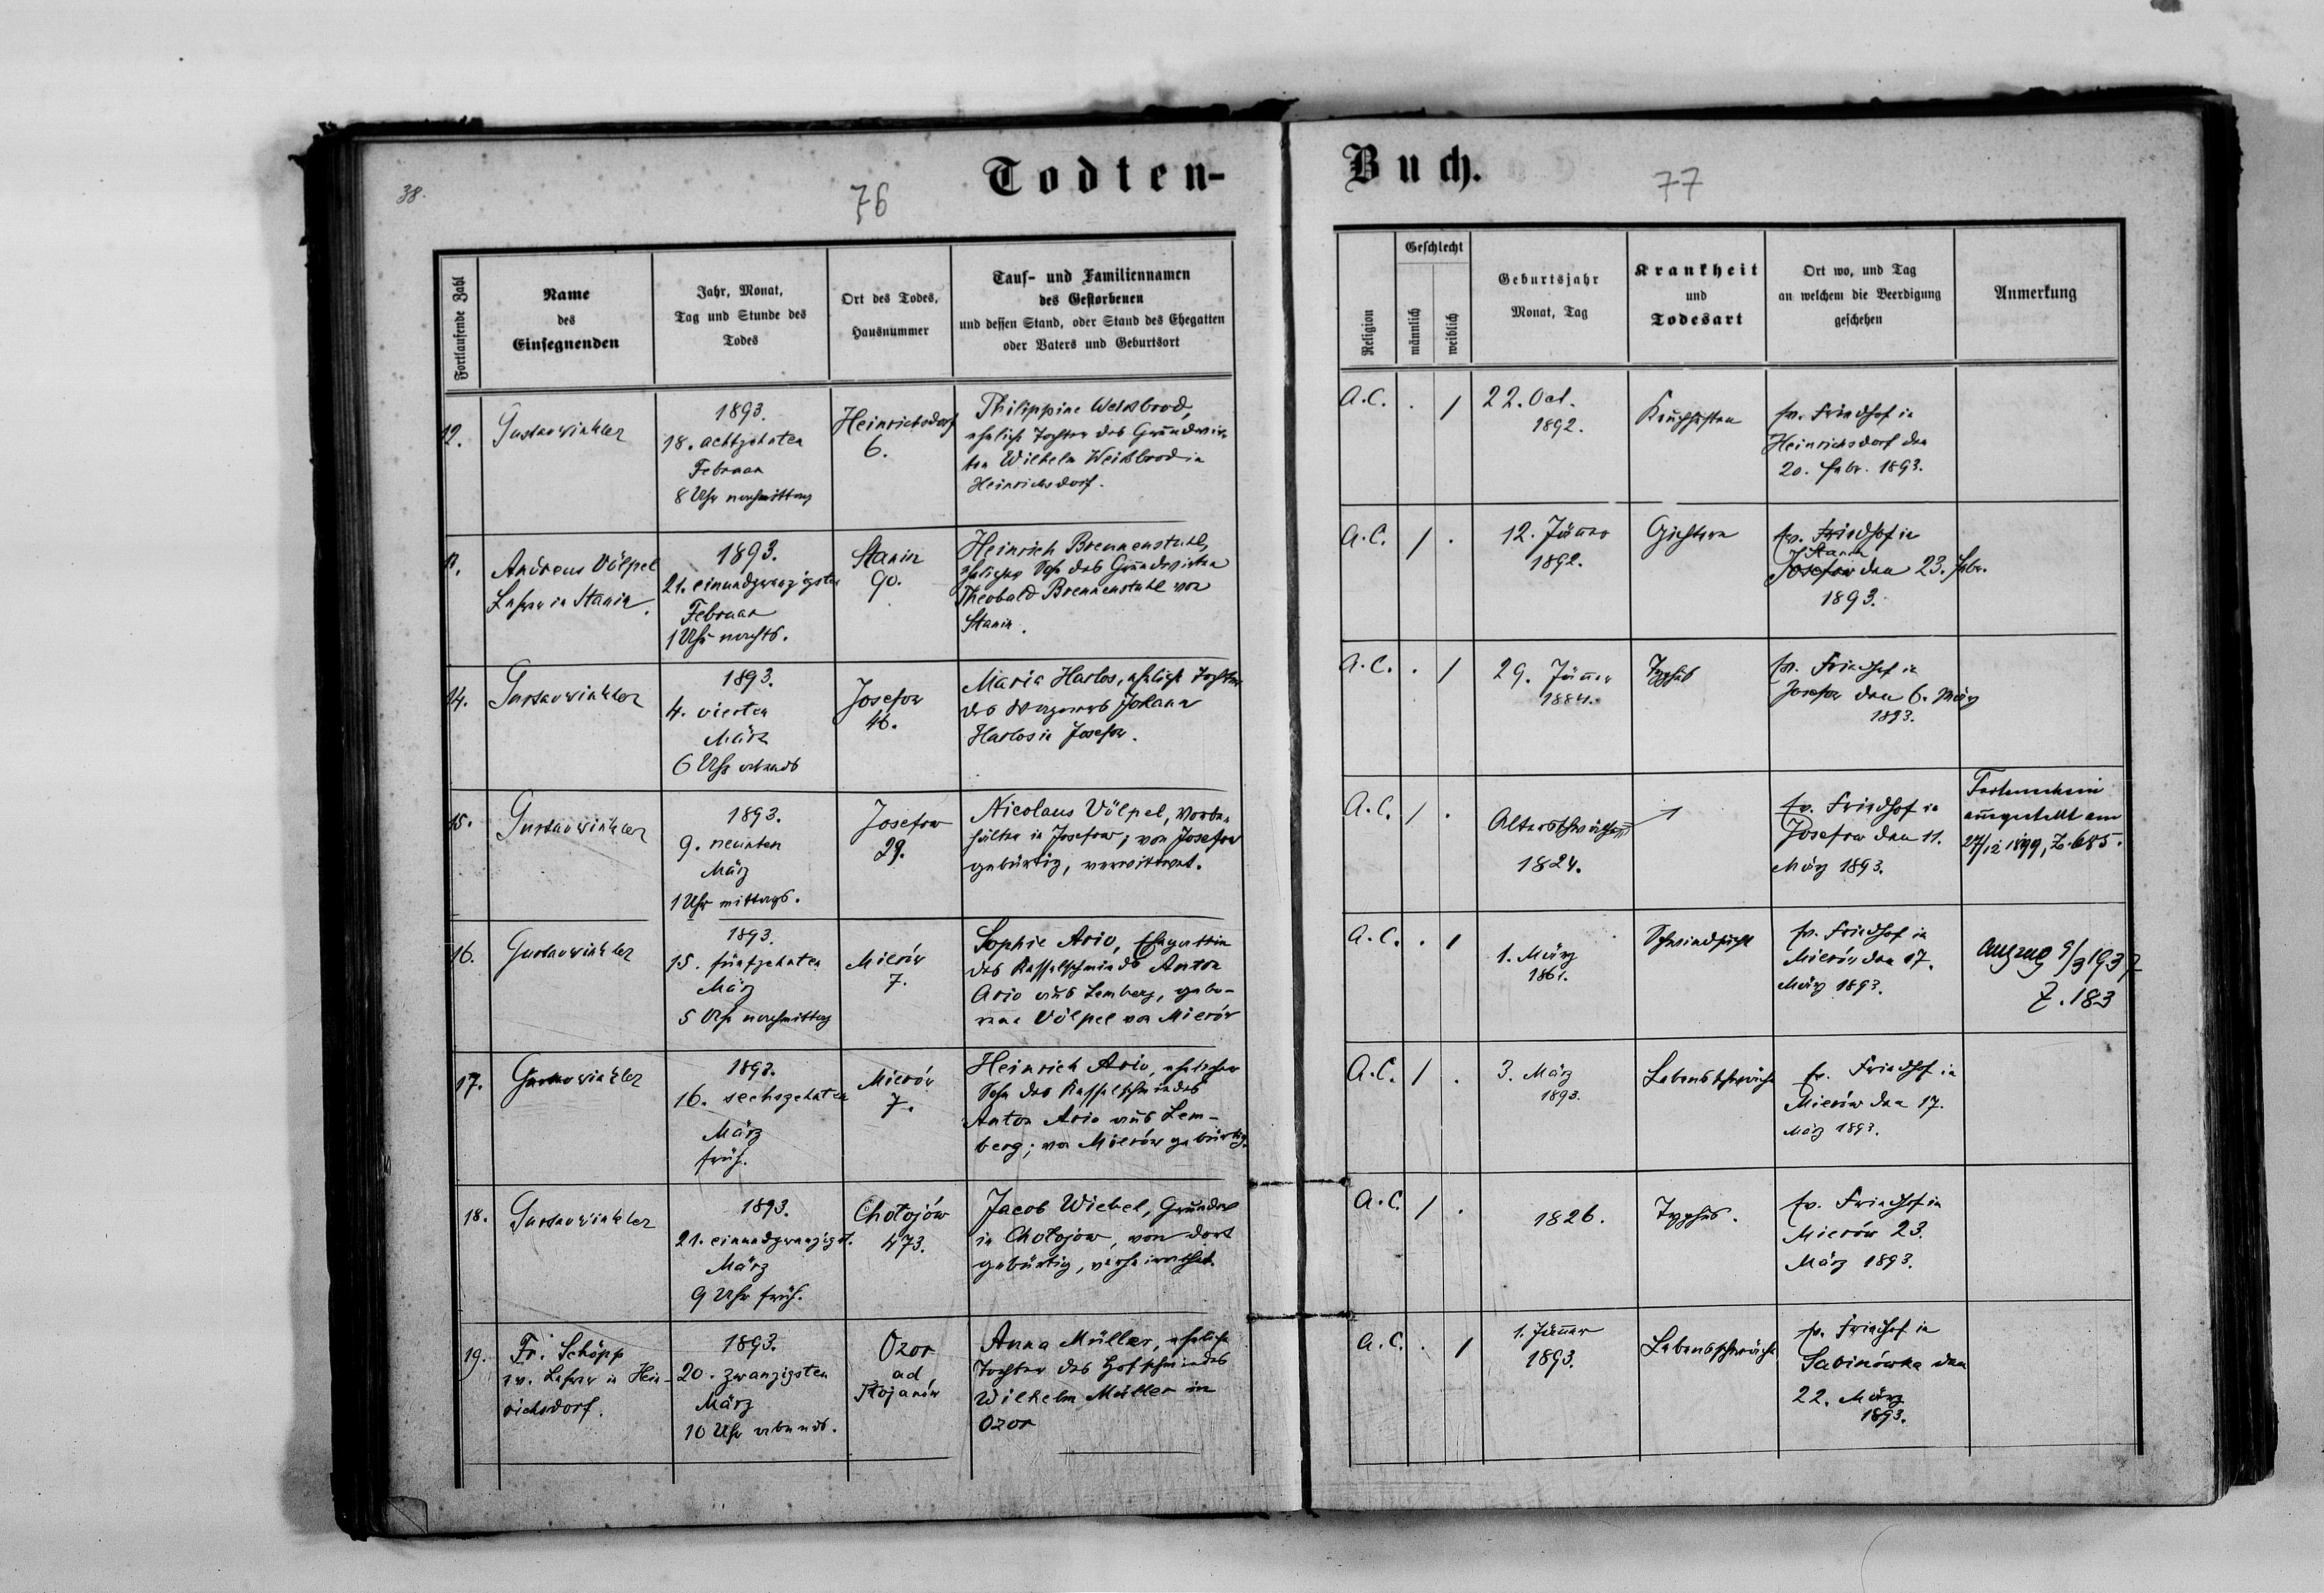 38.
76
Todten-
Buch.
77
Fortlaufende Zahl
Name
des
Einsegnenden
Jahr, Monat,
Tag und Stunde des
Todes
Ort des Todes,
Hausnummer
Tauf- und Familiennamen
des Gestorbenen
und dessen Stand, oder Stand des Ehegatten
oder Vaters und Geburtsort
Religion
Geschlecht
männlich
weiblich
Geburtsjahr
Monat, Tag
Krankheit
und
Todesart
Ort wo, und Tag
an welchem die Beerdigung
geschehen
Anmerkung
12.
Gustav Winkler
1893.
18. achtzehnten
Februar
8 Uhr nachmittag
Heinrichsdorf
6.
Philippine Weisbrod,
eheliche Tochter des Grundwir-
ten Wilhelm Weißbrod in
Heinrichsdorf.
A.C. . /
22. Oct.
1892.
Keuchhusten
ev. Friedhof in
Heinrichsdorf den
20. Febr. 1893.
Andreas Völpel
Lehrer in Stanin.
1893.
21. einundzwanzigsten
Februar
1 Uhr nachts.
Stanin
90.
Heinrich Brennenstuhl,
ehelicher Sohn des Grundwirten
Theobald Brennenstuhl von
Stanin.
A.C. / .
12. Jänner
1892.
Gichtern
ev. Friedhof in
Stanin
Josefow den 23. Febr.
1893.
14.
Gustav Winkler
1893.
4. vierten
März
6 Uhr abends
Josefow
46.
Maria Harlos, eheliche Tochter
des Wagners Johann
Harlos in Josefow.
A.C. . /
29. Jänner
1884.
Typhus
ev. Friedhof in
Josefow den 6. März
1893.
15.
Gustav Winkler
1893.
9. neunten
März
1 Uhr mittags.
Josefow
29.
Nicolaus Völpel, Vorbe-
hälter in Josefow; von Josefow
gebürtig, verwittwet.
A.C. / .
Altersschwäche
1824.
ev. Friedhof in
Josefow den 11.
März 1893.
Todtenschein
ausgestellt am
27/12 1899, Z. 685.
16.
Gustav Winkler
1893.
15. fünfzehnten
März
5 Uhr nachmittag
Mierów
7.
Sophie Ario, Ehegattin
des Kesselschmieds Anton
Ario aus Lemberg, gebo-
rene Völpel von Mierów
A.C. . /
1. März
1861.
Schwindsucht
ev. Friedhof in
Mierów den 17.
März 1893.
Auszug 9/3 1937
Z. 183
17.
Gustav Winkler
1893.
16. sechszehnten
März
früh.
Mierów
7.
Heinrich Ario, ehelicher
Sohn des Kesselschmiedes
Anton Ario aus Lem-
berg; von Mierów gebürtig.
A.C. / .
3. März
1893.
Lebensschwäche
ev. Friedhof in
Mierów den 17.
März 1893.
18.
Gustav Winkler
1893.
21. einundzwanzigst.
März
9 Uhr früh.
Chołojów
473.
Jacob Wiebel,
in Chołojow, von dort
gebürtig, verheirathet.
A.C. / .
1826.
Typhus.
ev. Friedhof in
Mierów 23.
März 1893.
19.
Fr. Schöpp
ev. Lehrer in Hein-
richsdorf.
1893.
20. zwanzigsten
März
10 Uhr abends.
Ozor
ad
Stojanów
Anna Müller, eheliche
Tochter des Hofschmiedes
Wilhelm Müller in
Ozor
A.C. . /
1. Jänner
1893.
Lebensschwäche
ev. Friedhof in
Sabinówka den
22. März
1893.